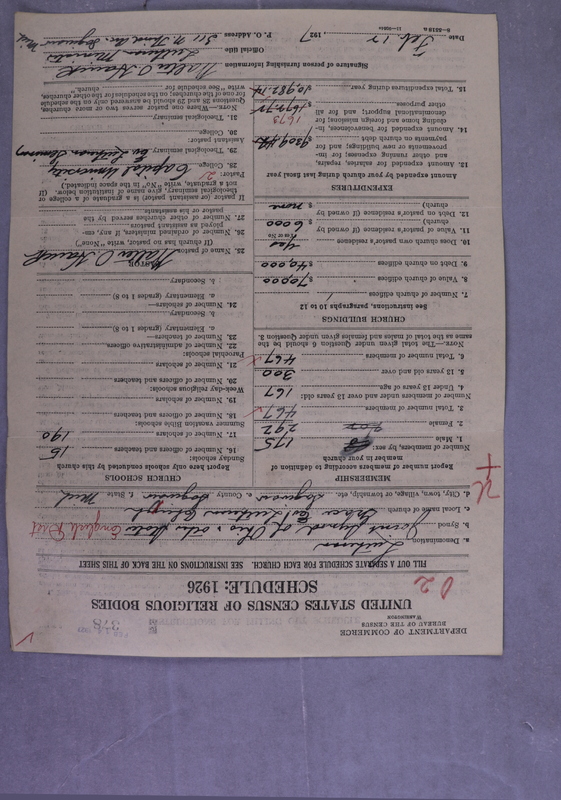 DEPARTMENT OF COMMERCE
BUREAU OF THE CENSUS
WASHINGTON
378
UNITED STATES CENSUS OF RELIGIOUS BODIES
SCHEDULE: 1926
02
FILL OUT A SEPARATE SCHEDULE FOR EACH CHURCH. SEE INSTRUCTIONS ON THE BACK OF THIS SHEET
a. Denomination Lutheran
b. Synod Joint Synod of Ohio & other States English Dist
c. Local name of church Grace Ev. Lutheran Church
d. City, town, village, or township, etc. Saginaw e. County Saginaw f. State Mich
MEMBERSHIP
Report number of members according to definition of member in your church
Number of members, by sex:
1. Male 175
2. Female 292
3. Total number of members 467
Number of members under and over 13 years old:
4. Under 13 years of age 167
5. 13 years old and over 300
6. Total number of members 467
NOTE.—The total given under Question 6 should be the same as the total of males and females given under Question 3.
CHURCH BUILDINGS
See instructions, paragraphs 10 to 12
7. Number of church edifices 1
8. Value of church edifices $ 70,000
9. Debt on church edifices $ 40,000
10. Does church own pastor's residence yes
(Yes or No)
11. Value of pastor's residence (if owned by church) $ 6000
12. Debt on pastor's residence (if owned by church) $ none
EXPENDITURES
Amount expended by your church during last fiscal year
13. Amount expended for salaries, repairs, and other running expenses; for improvements or new building; and for payments on church debt $ 9309.42
14. Amount expended for benevolences, including home and foreign missions; for denominational support; and for all other purposes $ 1672.72
1673
15. Total expenditures during year $ 10,982.14
CHURCH SCHOOLS
Report here only schools conducted by this church
Sunday schools:
16. Number of officers and teachers 15
17. Number of scholars 190
Summer vacation Bible schools:
18. Number of officers and teachers
19. Number of scholars
Week-day religious schools:
20. Number of officers and teachers
21. Number of scholars
Parochial schools:
22. Number of administrative officers
23. Number of teachers
a. Elementary (grades 1 to 8)
b. Secondary
24. Number of scholars—
a. Elementary (grades 1 to 8)
b. Secondary
PASTOR
25. Name of pastor Walter O
(If church has no pastor, write "None")
26. Number of ordained ministers, if any, employed as assistant pastors
27. Number of other churches served by the pastor or his assistants
If pastor (or assistant pastor) is a graduate of a college or theological seminary, give name of institution below. (If not a graduate, write "No" in the space indicated.)
Pastor: 2
28. College Capital University
29. Theological seminary Ev. Lutheran Seminary
Assistant pastor:
30. College
31. Theological seminary
NOTE.—Where one pastor serves two or more churches, Questions 28 and 29 should be answered only on the schedule for one of the churches; on the schedules for the other churches, write "See schedule for church."
Signature of person furnishing information Walter O
Official title Lutheran Minister
P. O. Address 511 N. Third Av. Saginaw Mich
Date Feb. 12, 1927